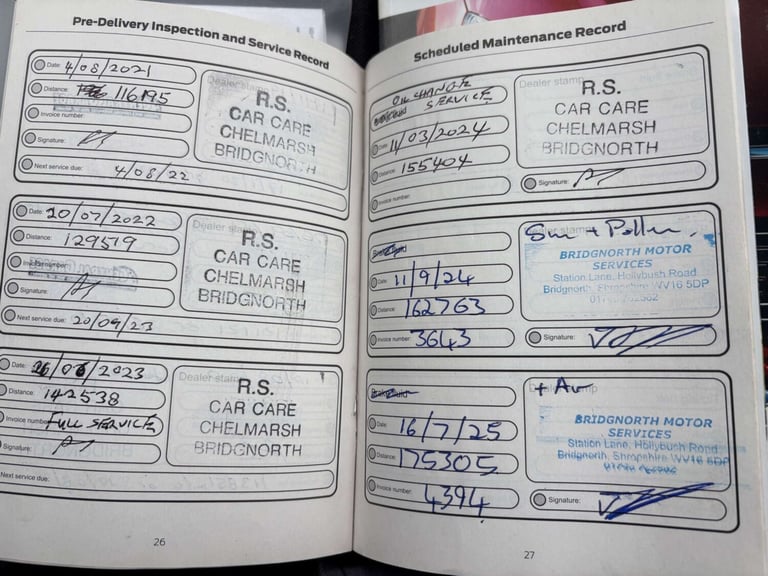 Pre-Delivery Inspection and Service Record
Date: 4/08/2021
Distance: 116195
Invoice number:
Signature:
Next service due: 4/08/22
Dealer stamp
R.S.
CAR CARE
CHELMARSH
BRIDGNORTH
Date: 20/07/2022
Distance: 129579
Invoice number:
Signature:
Next service due: 20/09/23
Dealer stamp
R.S.
CAR CARE
CHELMARSH
BRIDGNORTH
Date: 26/06/2023
Distance: 142538
Invoice number: FULL SERVICE
Signature:
Next service due:
Dealer stamp
R.S.
CAR CARE
CHELMARSH
BRIDGNORTH
26
Scheduled Maintenance Record
OIL CHANGE
SERVICE
Date: 11/03/2024
Distance: 155404
Invoice number:
Dealer stamp
R.S.
CAR CARE
CHELMARSH
BRIDGNORTH
Signature:
Date: 11/9/24
Distance: 162763
Invoice number: 3643
+ Pollen
BRIDGNORTH MOTOR
SERVICES
Station Lane, Hollybush Road
Bridgnorth, Shropshire WV16 5DP
Signature:
Date: 16/7/25
Distance: 175305
Invoice number: 4394
+ Air
BRIDGNORTH MOTOR
SERVICES
Station Lane, Hollybush Road
Bridgnorth, Shropshire WV16 5DP
Signature:
27